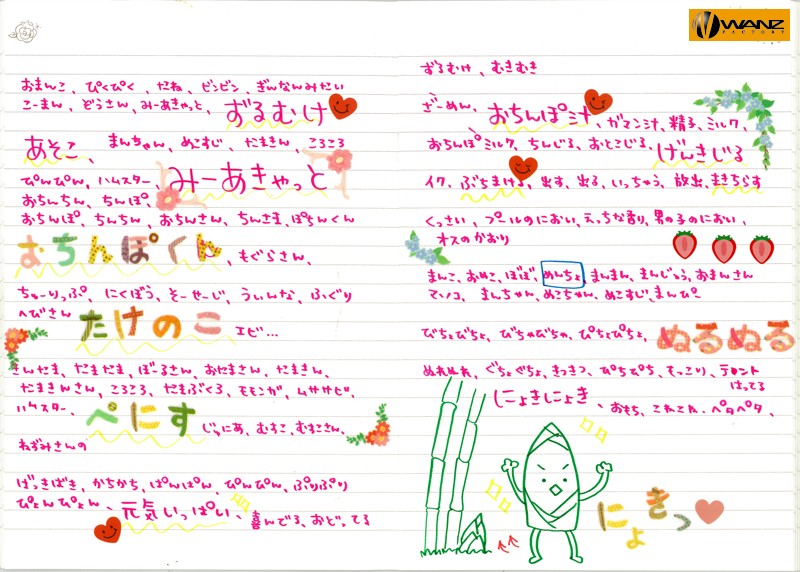 おまんこ、ぴくぴく、だね、ビンビン、ぎんなんみたい
こーまん、どうさん、みーあきゃっと、ずるむけ
あそこ、まんちゃん、めこすじ、だまきん、ころころ
ぴんぴん、ハムスター、みーあきゃっと
おちんちん、ちんぽ、
おちんぽ、ちんちん、おちんさん、ちんさま、ぽちんくん
おちんぽくん、もぐらさん、
ちゅーりっぷ、にくぼう、そーせーじ、うぃんな、ふぐり
へびさん
たけのこ エビ…
きんたま、だまだま、ぼーるさん、おたまさん、たまきん、
たまきんさん、こころ、たまぶくろ、モモンガ、ムササビ、
ハムスター、ぺにす じゅにあ、むすこ、むすこさん、
ねずみさんの
げっきばき、かちかち、ぱんぱん、ぴんぴん、ぷりぷり
ぴょんぴょん、元気いっぱい、喜んでる、おどってる
WANZ
FACTORY
ずるむけ、むきむき
ざーめん、おちんぽ汁、ガマン汁、精子、ミルク、
おちんぽミルク、ちんじる、おとこじる、げんきじる
イク、ぶちまける、出す、出る、いっちゃう、放出、まきちらす
くっさい、プールのにおい、えっちな香り、男の子のにおい、
オスのかおり
まんこ、おめこ、ぼぼ、めんちょ、まんまん、まんじゅう、おまんさん
マンノコ、まんちゃん、めこちゃん、めこすじ、まんぴー
びちょびちょ、びちゃびちゃ、ぴちょぴちょ、ぬるぬる
ぬれぬれ、ぐちょぐちょ、きつきつ、ぴちぴち、もっこり、テント
はってる
にょきにょき、おもち、こねこね、ペタペタ、
にょきっ